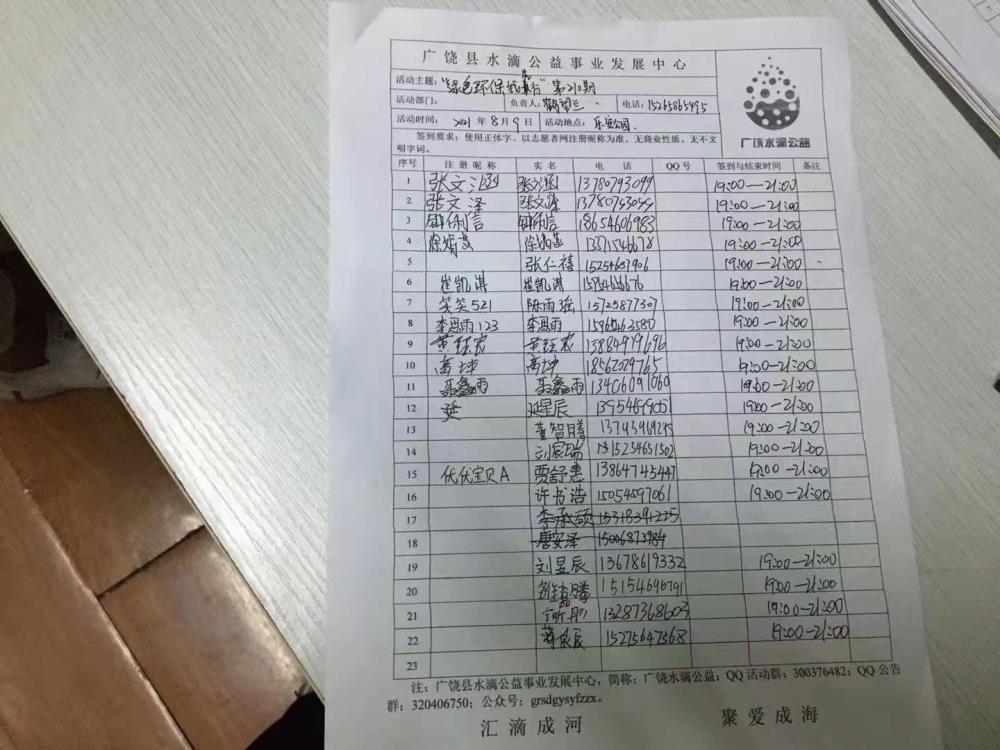 广饶县水滴公益事业发展中心
活动主题:"绿色环保我先行"第210期
活动部门: 负责人: 电话:15265865495
活动时间: 2021年8月9日 活动地点: 乐安公园.
签到要求:使用正体字,以志愿者网注册昵称为准,无商业性质,无不文
明字词。
广饶水滴公益
序号 注册昵称 实名 电话 QQ号 签到与结束时间 备注
1 张文涵 张文涵 13780793099 19:00—21:00
2 张文泽 张文泽 13780793099 19:00—21:00
3 钟俐言 钟俐言 18654606983 19:00—21:00
4 19:00—21:00
5 张仁禧 15254657906 19:00—21:00
6 崔凯淇 崔凯淇 19:00—21:00
7 笑笑521 陈雨瑶 15725877307 19:00—21:00
8 李思雨123 李思雨 15965463580 19:00—21:00
9 黄钰宸 黄钰宸 13884919696 19:00—21:00
10 高坤 高坤 18562029765 19:00—21:00
11 聂鑫雨 聂鑫雨 13406091060 19:00—21:00
12 延 延星辰 19:00—21:00
13 董智腾 19:00—21:00
14 刘宸瑞 15254651502 19:00—21:00
15 优优宝贝A 贾舒惠 13864745447 19:00—21:00
16 许书浩 15054597061 19:00—21:00
17 李承硕 15318391225
18 唐安泽 15006873984
19 刘昱辰 13678619332 19:00—21:00
20 15154696791 19:00—21:00
21 13287368603 19:00—21:00
22 15275647568 19:00—21:00
23
注:广饶县水滴公益事业发展中心,简称:广饶水滴公益;QQ活动群:300376482;QQ公告
群:320406750;公众号:grsdgysyfzzx。
汇滴成河 聚爱成海